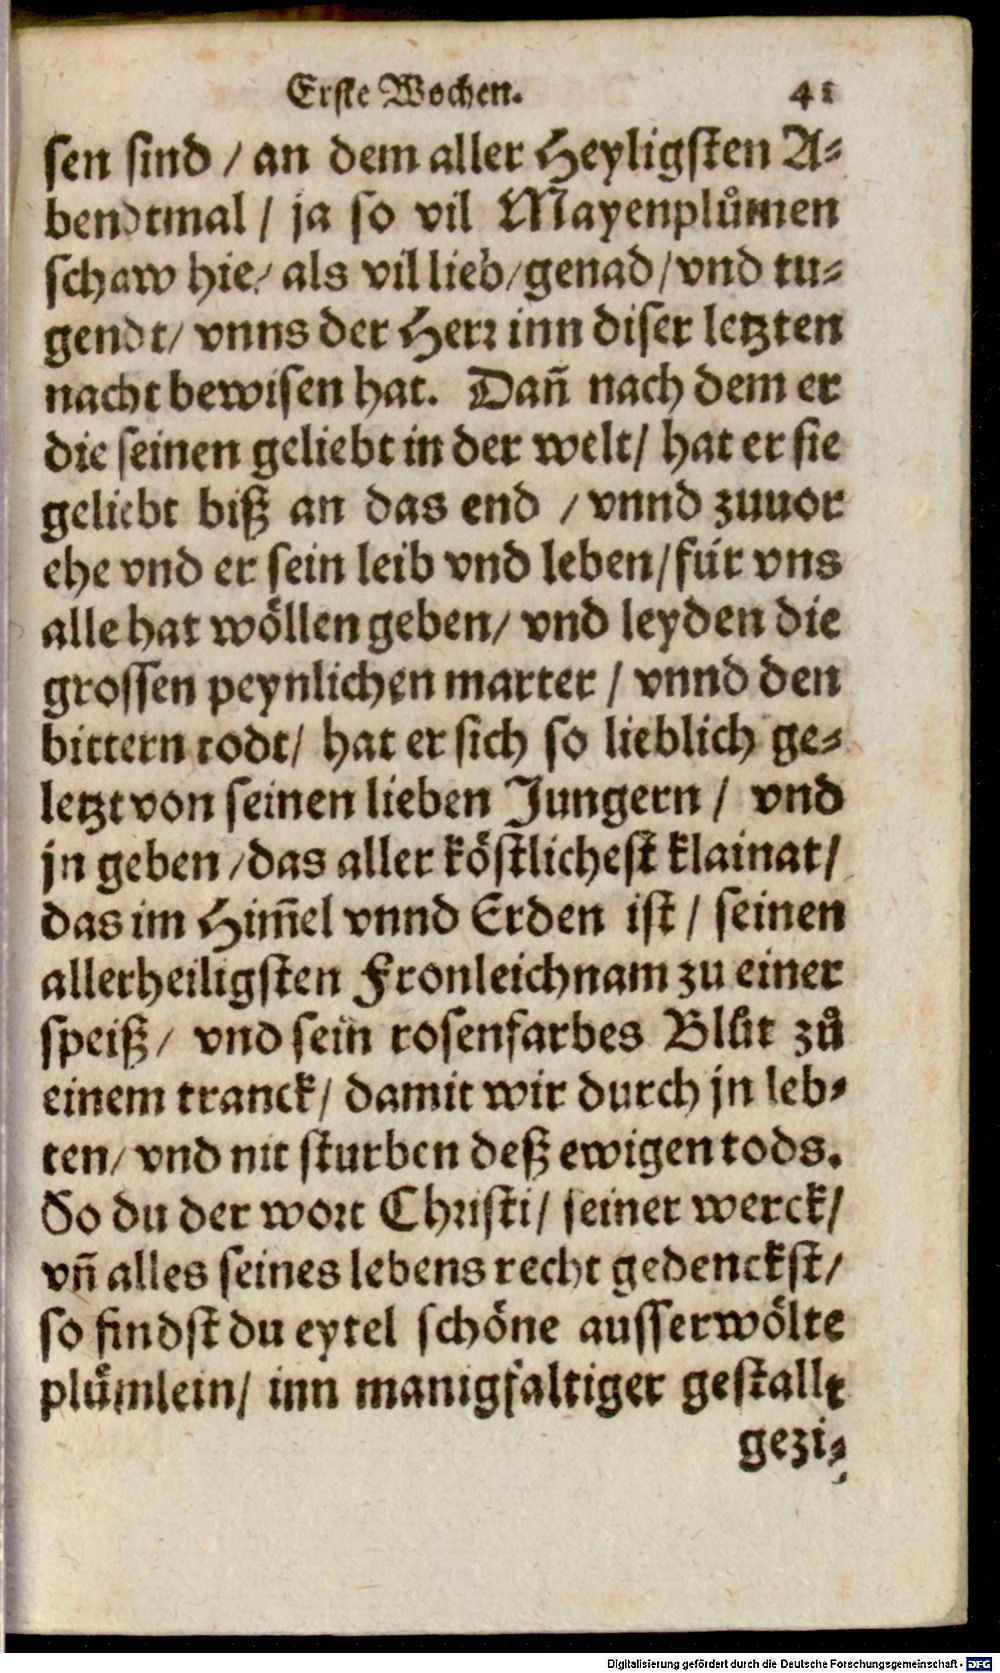 Erſte Wochen. 41
ſen ſind / an dem aller Heyligſten A⸗
bendtmal / ja ſo vil Mayenplůmen
ſchaw hie / als vil lieb / genad / vnd tu⸗
gendt / vnns der Herꝛ inn diſer letzten
nacht bewiſen hat. Dañ nach dem er
die ſeinen geliebt in der welt / hat er ſie
geliebt biß an das end / vnnd zuuor
ehe vnd er ſein leib vnd leben / für vns
alle hat wöllen geben / vnd leyden die
groſſen peynlichen marter / vnnd den
bittern todt / hat er ſich ſo lieblich ge⸗
letzt von ſeinen lieben Jungern / vnd
jn geben / das aller köſtlicheſt klainat /
das im Him̃el vnnd Erden iſt / ſeinen
allerheiligſten Fronleichnam zu einer
ſpeiß / vnd ſein roſenfarbes Blůt zů
einem tranck / damit wir durch jn leb⸗
ten / vnd nit ſturben deß ewigen tods.
So du der woꝛt Chꝛiſti / ſeiner werck /
vñ alles ſeines lebens recht gedenckſt /
ſo findſt du eytel ſchöne auſſerwölte
plůmlein / inn manigfaltiger geſtallt
gezi⸗
Digitalisierung gefördert durch die Deutsche Forschungsgemeinschaft - DFG